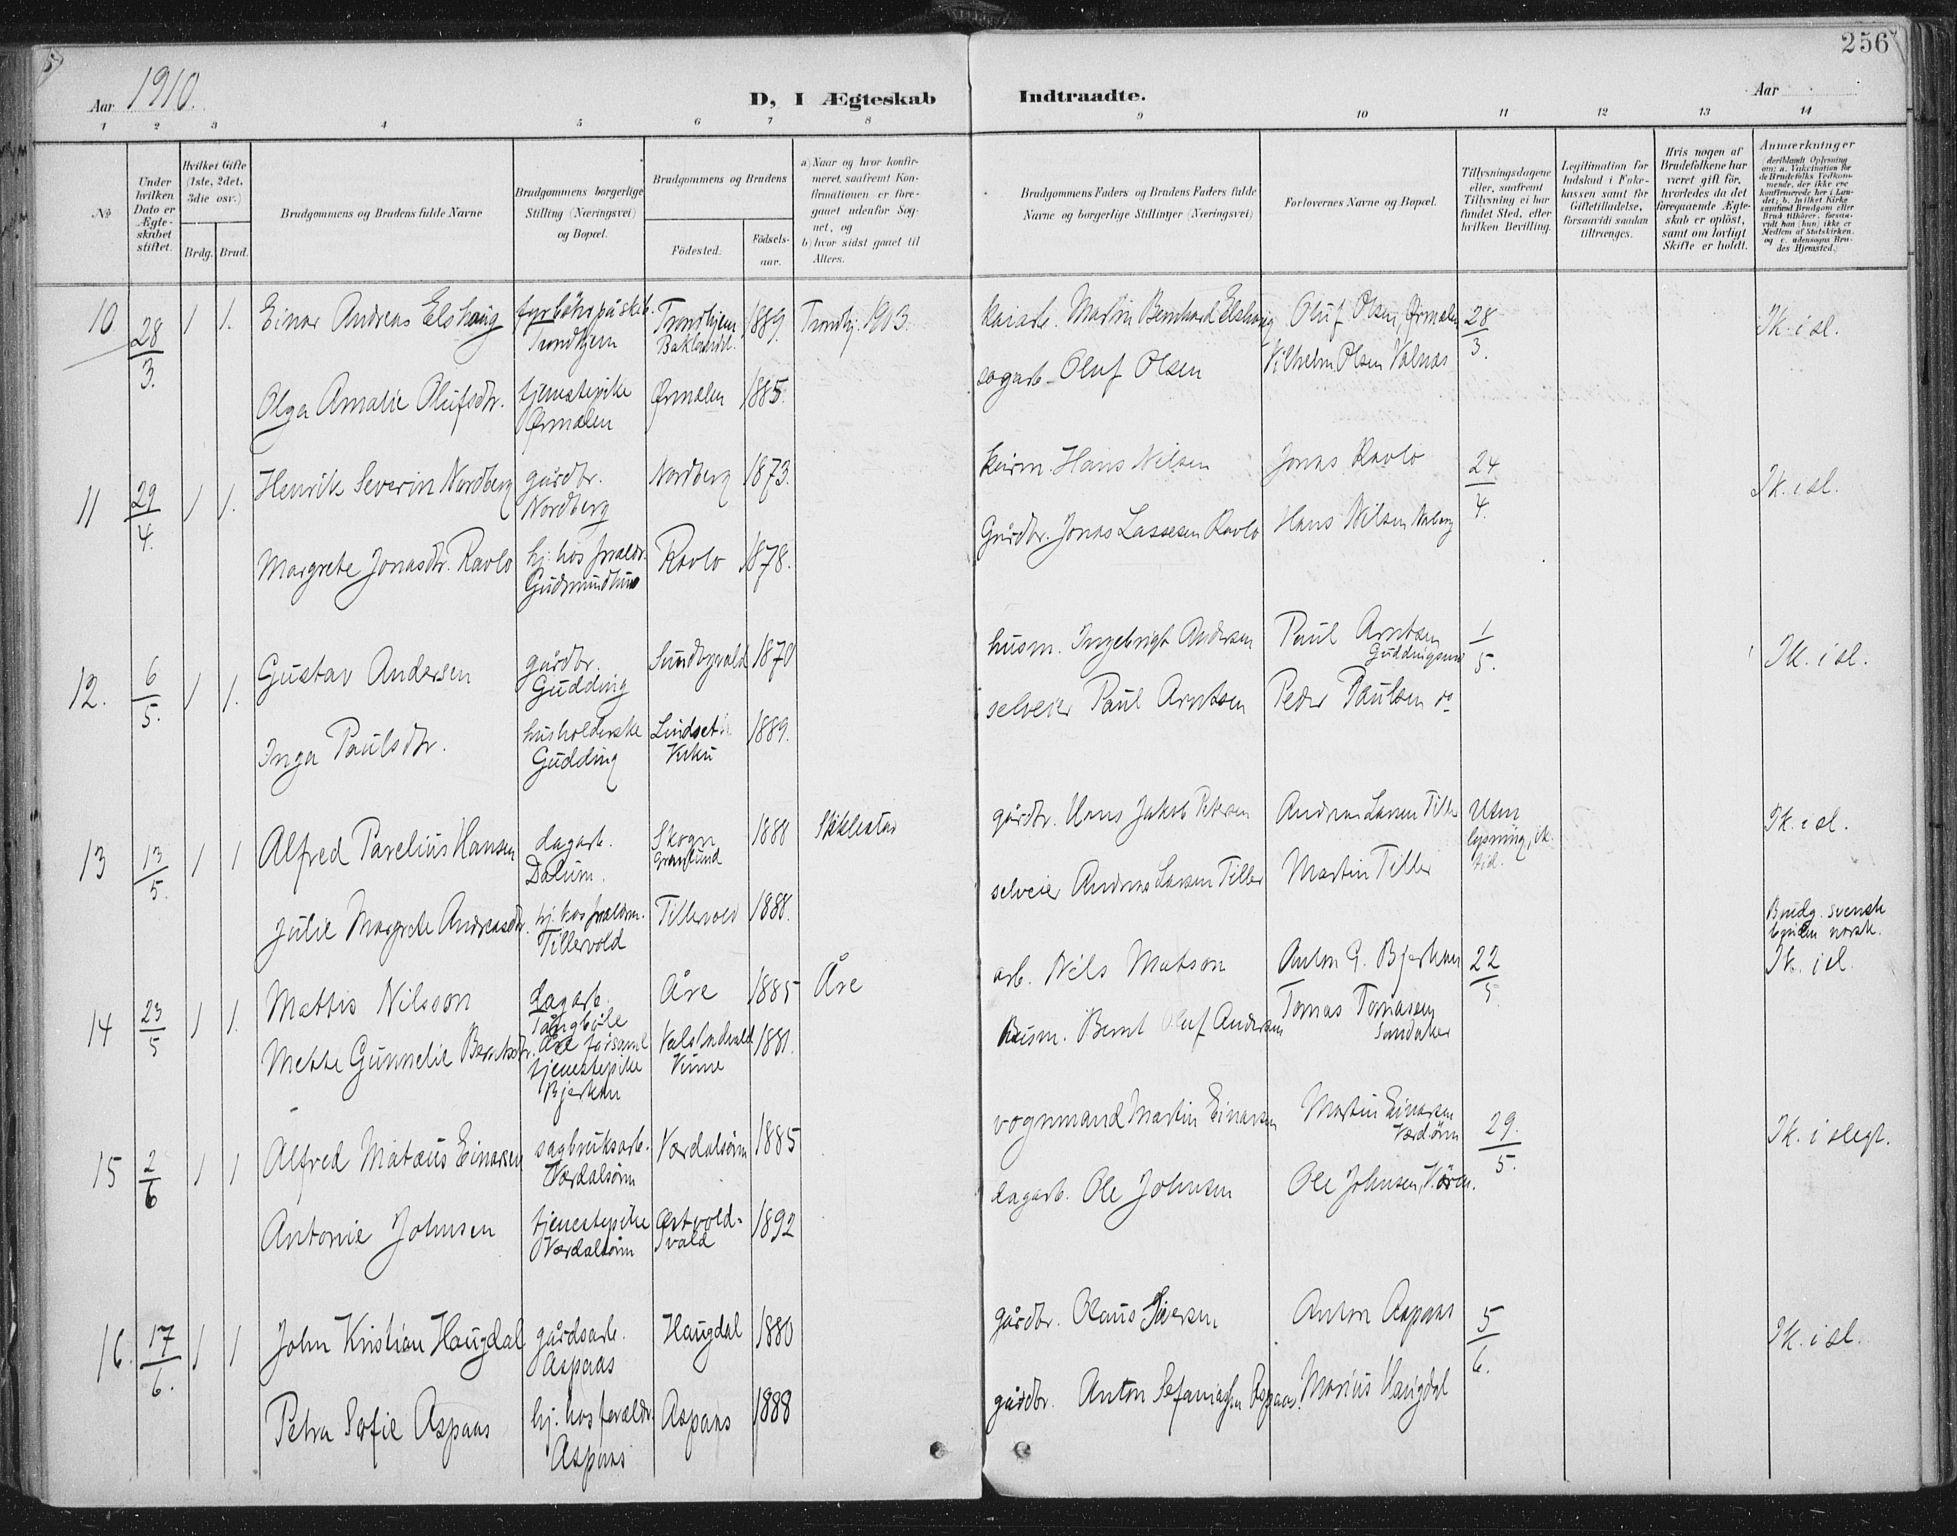 5
256
Aar 1910.
D, I Ægteskab Indtraadte.
Aar
1 2 3 4 5 6 7 8 9 10 11 12 13 14
No.
Under hvilken Dato er Ægteskabet stiftet.
Hvilket Gifte (1ste, 2det, 3die osv.)
Brdg. Brud.
Brudgommens og Brudens fulde Navne
Brudgommens borgerlige Stilling (Næringsvei) og Bopæl.
Brudgommens og Brudens
Fødested.
Fødselsaar.
a) Naar og hvor konfirmeret, saafremt Konfirmationen er foregaaet udenfor Sognet, og
b) hvor sidst gaaet til Alters.
Brudgommens Faders og Brudens Faders fulde Navne og borgerlige Stillinger (Næringsvei)
Forlovernes Navne og Bopæl.
Tillysningsdagene eller, saafremt Tillysning ei har fundet Sted, efter hvilken Bevilling.
Legitimation for Indskud i Enkekassen samt for Giftetilladelse, forsaavidt saadan tiltrænges.
Hvis nogen af Brudefolkene har været gift før, hvorledes da det foregaaende Ægteskab er opløst, samt om lovligt Skifte er holdt.
Anmærkninger
10 28/3. 1 1. Einar Andreas Elshaug fyrbøter på skib. Trondhjem Trondhjem Baklandet. 1889. Trondhj. 1903. Martin Bernhard Elshaug Oluf Olsen, Ørmelen 28/3. Ik. i sl.
Olga Amalie Olufsdtr. tjenestepike Ørmelen Ørmelen 1885. sagarb. Oluf Olsen Vilhelm Olsen Volnæs
11 29/4. 1 1. Henrik Severin Nordberg gårdbr. Nordberg Nordberg 1873. Hans Nilsen Jonas Ravlo 24/4. Ik. i sl.
Margrete Jonasdtr. Ravlo hj. hos foreldr. Ravlo 1878. Gårdbr. Jonas Lassesen Ravlo Hans Nilsen
12. 6/5. 1 1. Gustav Andersen gårdbr. Gudding 1870 husm. Ingebrigt Andersen Paul Arntsen 1/5. Ik. i sl.
Inga Paulsdtr. husholderske Gudding 1889. selveier Paul Arntsen Peder Paulsen do
13 13/5. 1 1 Alfred Parelius Hansen dagarb. Dalum. Skogn Granlund 1888 Stiklestad gårdbr. Hans Jakob Petersen Andreas Larsen Tiller Uten lysning, ik. tid. Ik. i sl.
Julie Margrete Andreasdtr. hj. hos foreldrn. Tillervold Tillervold 1888. selveier Andreas Larsen Tiller Martin Tiller
Brudg. svensk bruden norsk.
14 23/5 1 1. Mattis Nilsson dagarb. Åre 1885 Åre arb. Nils Matson Anton G. Bjerkan 22/5. Ik. i sl.
Mette Gunnelie Berntsdtr. tjenestepike Bjerkan 1881. husm. Bernt Oluf Andersen Tomas Tomasen
15 2/6 1 1 Alfred Matæus Einarsen sagbruksarb. Værdalsøren Værdalsøren 1885 vognmand Martin Einarsen Martin Einarsen 29./5. Ik. i slegt.
Antonie Johnsen tjenestepike Værdalsøren Østvoldsvald 1892 dagarb. Ole Johnsen Ole Johnsen, V.øren.
16. 17/6. 1 1 John Kristian Haugdal gårdsarb. Aspaas Haugdal 1880 gårdbr. Olaus Anton Aspaas 5/6. Ik. i sl.
Petra Sofie Aspaas hj. hos foreldr. Aspaas Aspaas 1888 gårdbr. Anton Aspaas Marius Haugdal